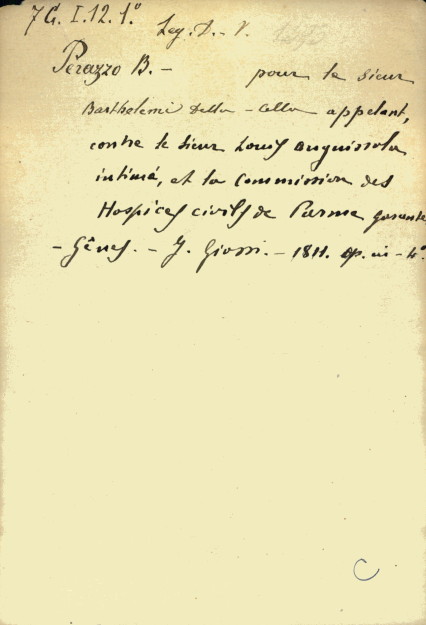 7 G. I. 12. 1.°
Leg. D. - V.
Perazzo B. - pour le sieur
Barthelemi Della - Cella appelant,
contre le sieur Louis Anguissola
intimé, et la Commission des
Hospices civils de Parme garante
- Gênes. - J. Giossi. - 1811. op. in - 4°
C